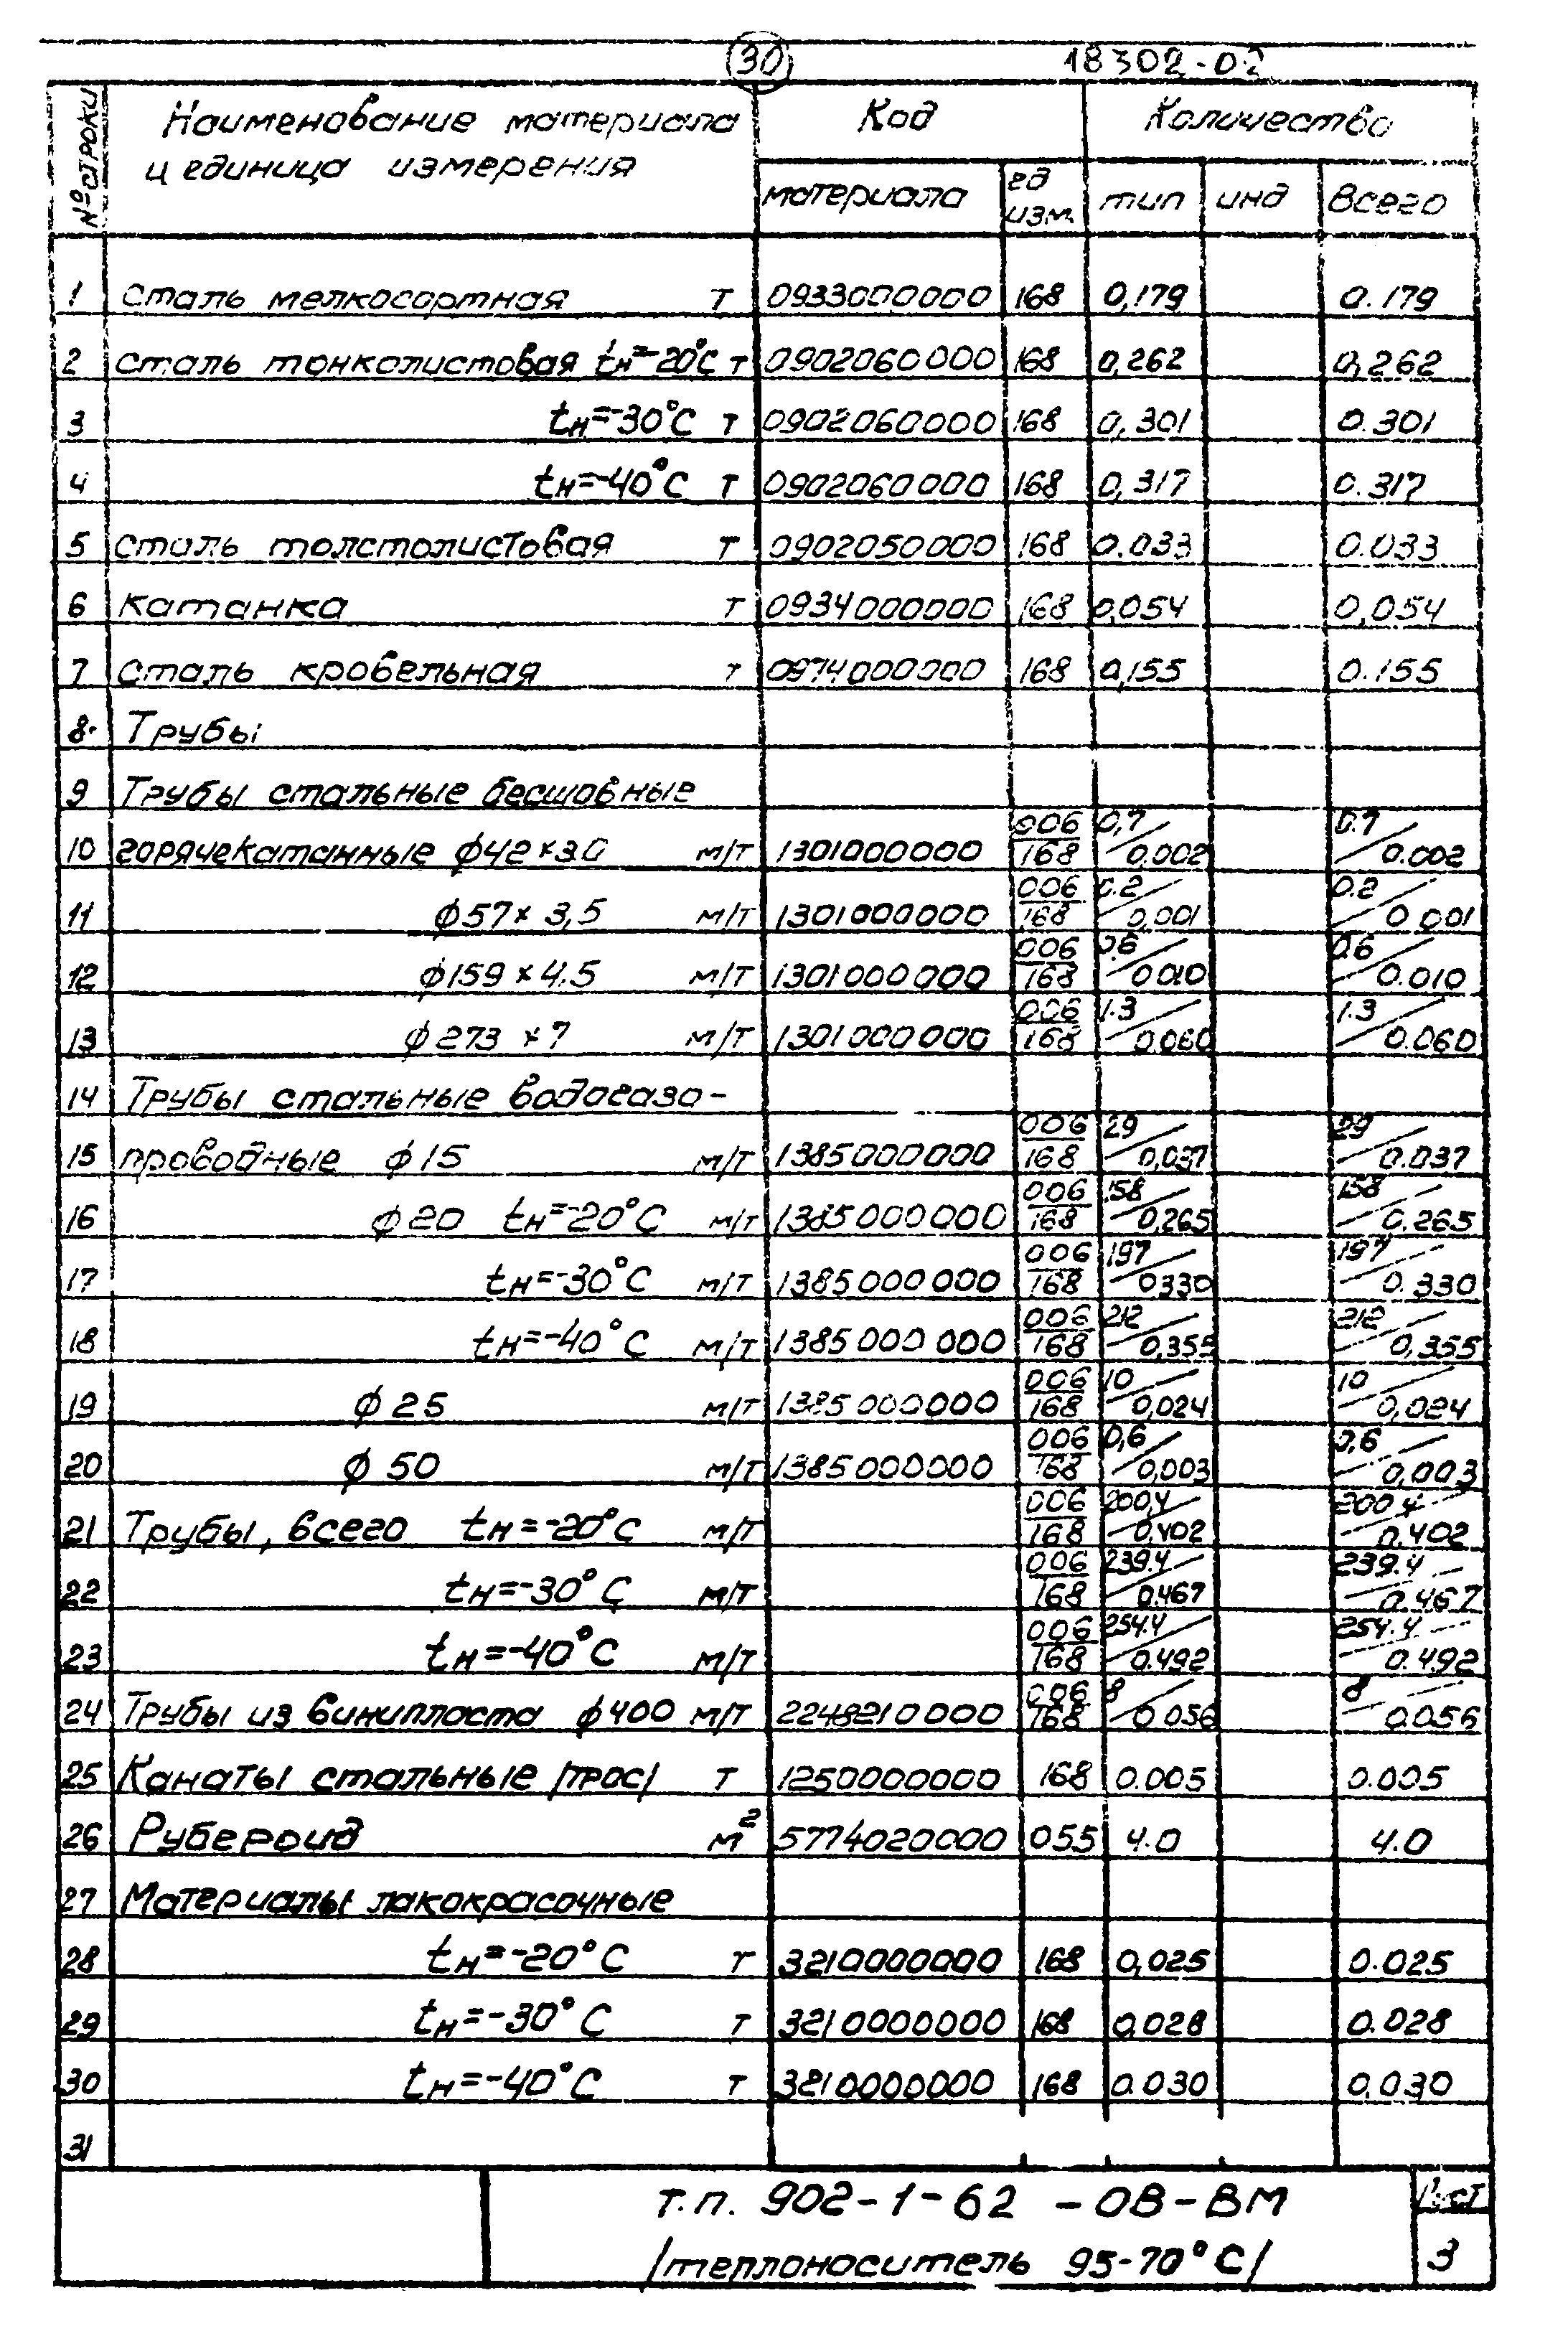 30 18302-02
№ строки Наименование материала и единица измерения Код Количество
материала ед изм. тип инд Всего
1 Сталь мелкосортная т 0933000000 168 0,179 0.179
2 Сталь тонколистовая tн=-20°С т 0902060000 168 0,262 0,262
3 tн=-30°С т 0902060000 168 0,301 0.301
4 tн=-40°С т 0902060000 168 0,317 0.317
5 Сталь толстолистовая т 0902050000 168 0.033 0.033
6 Катанка т 0934000000 168 0,054 0,054
7 Сталь кровельная т 0974000000 168 0,155 0.155
8 Трубы
9 Трубы стальные бесшовные
10 горячекатанные ϕ42×3.0 м/т 1301000000 006/168 0,7/0,002 0.7/0.002
11 ϕ57×3,5 м/т 1301000000 006/168 0.2/0,001 0.2/0.001
12 ϕ159×4.5 м/т 1301000000 006/168 0.6/0.010 0.6/0.010
13 ϕ273×7 м/т 1301000000 006/168 1.3/0.060 1.3/0.060
14 Трубы стальные водогазо-
15 проводные ϕ15 м/т 1385000000 006/168 29/0,037 29/0.037
16 ϕ20 tн=-20°С м/т 1385000000 006/168 158/0,265 158/0.265
17 tн=-30°С м/т 1385000000 006/168 197/0330 197/0.330
18 tн=-40°С м/т 1385000000 006/168 212/0,355 212/0,355
19 ϕ25 м/т 1385000000 006/168 10/0,024 10/0,024
20 ϕ50 м/т 1385000000 006/168 0,6/0,003 0,6/0,003
21 Трубы, всего tн=-20°С м/т 006/168 200,4/0,402 200.4/0.402
22 tн=-30°С м/т 006/168 239.4/0.467 239.4/0.467
23 tн=-40°С м/т 006/168 254.4/0.492 254.4/0.492
24 Трубы из винипласта ϕ400 м/т 2248210000 006/168 8/0.056 8/0.056
25 Канаты стальные /трос/ т 1250000000 168 0.005 0.005
26 Рубероид м² 5774020000 055 4.0 4.0
27 Материалы лакокрасочные
28 tн=-20°С т 3210000000 168 0,025 0.025
29 tн=-30°С т 3210000000 168 0.028 0.028
30 tн=-40°С т 3210000000 168 0.030 0,030
31
т.п. 902-1-62 -ОВ-ВМ Лист
/теплоноситель 95-70°С/ 3